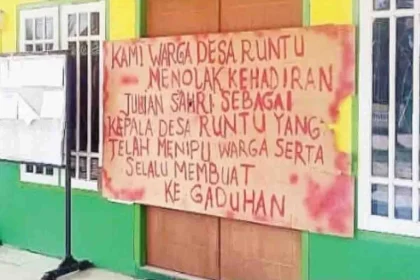 KAMI WARGA DESA RUNTU
MENOLAK KEHADIRAN
JUMAN SAHRI SEBAGAI
KEPALA DESA RUNTU YANG
TELAH MENIPU WARGA SERTA
SELALU MEMBUAT
KE GADUHAN